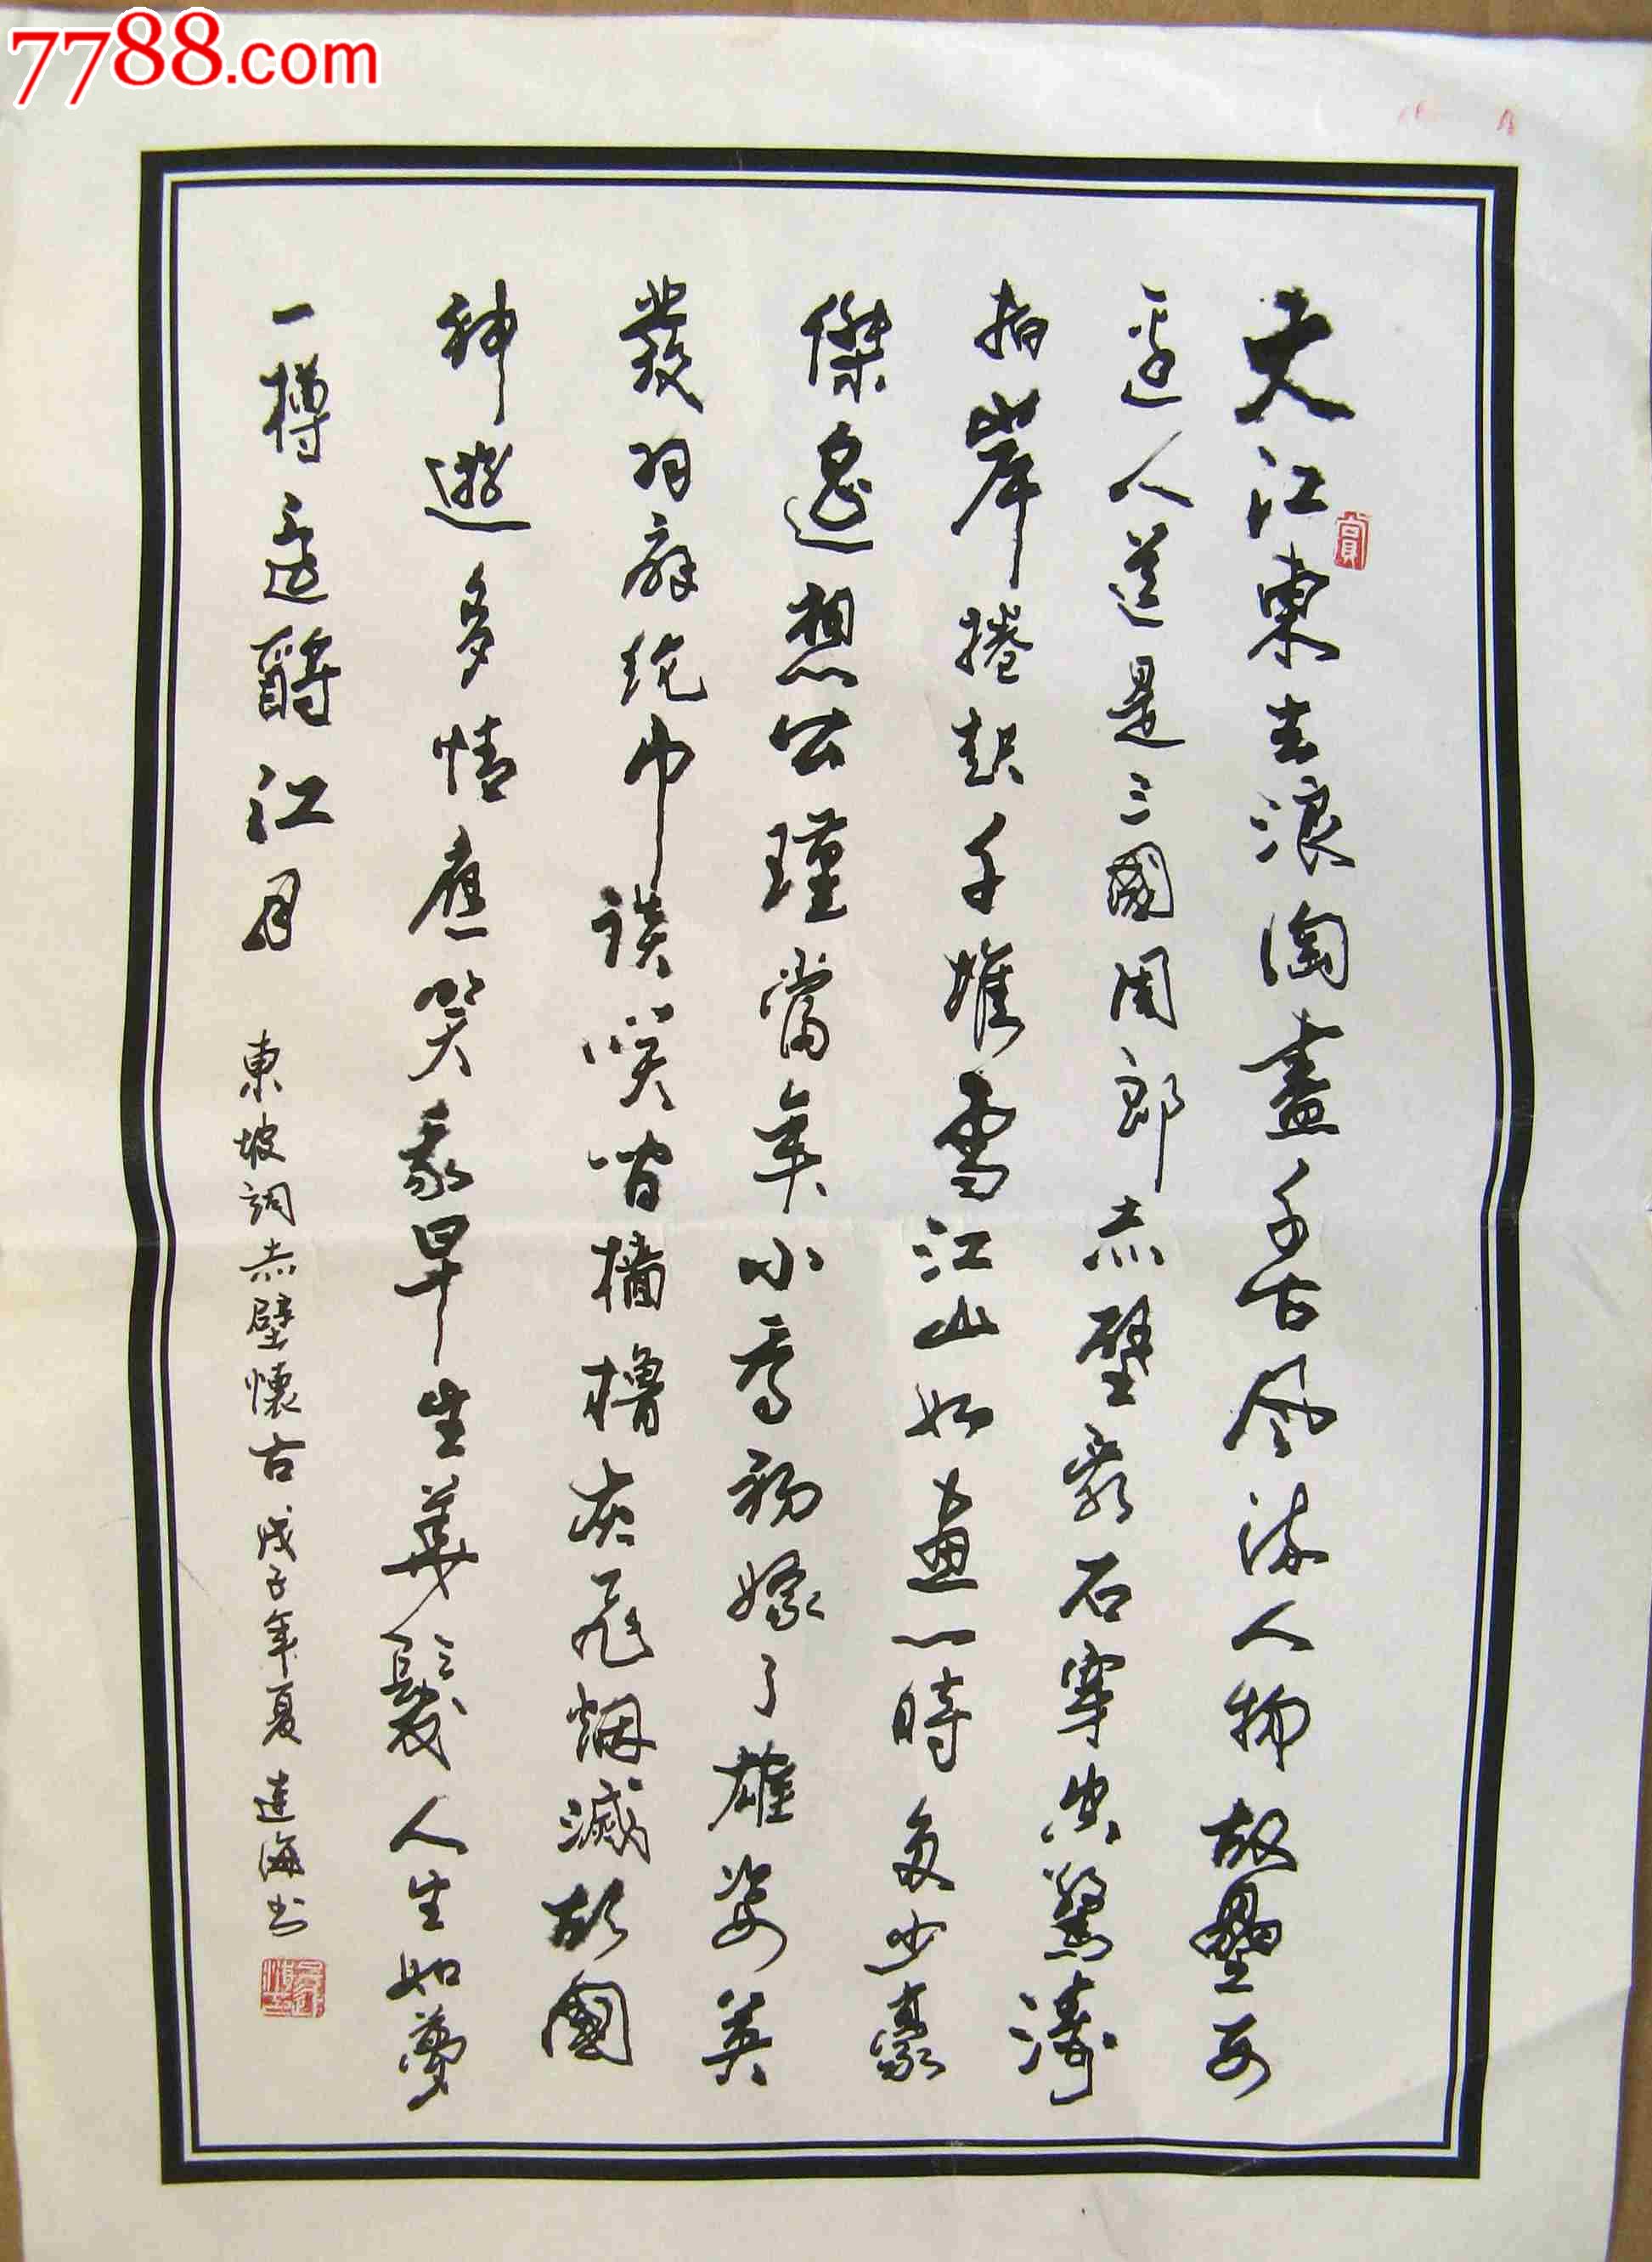 7788.com
大江東去浪淘盡千古風流人物故壘西
邊人道是三國周郎赤壁亂石穿空驚濤
拍岸捲起千堆雪江山如畫一時多少豪
傑遙想公瑾當年小喬初嫁了雄姿英
發羽扇綸巾談笑間檣櫓灰飛烟滅故國
神遊多情應笑我早生華髮人生如夢
一樽還酹江月
東坡詞赤壁懷古戊子年夏連海书